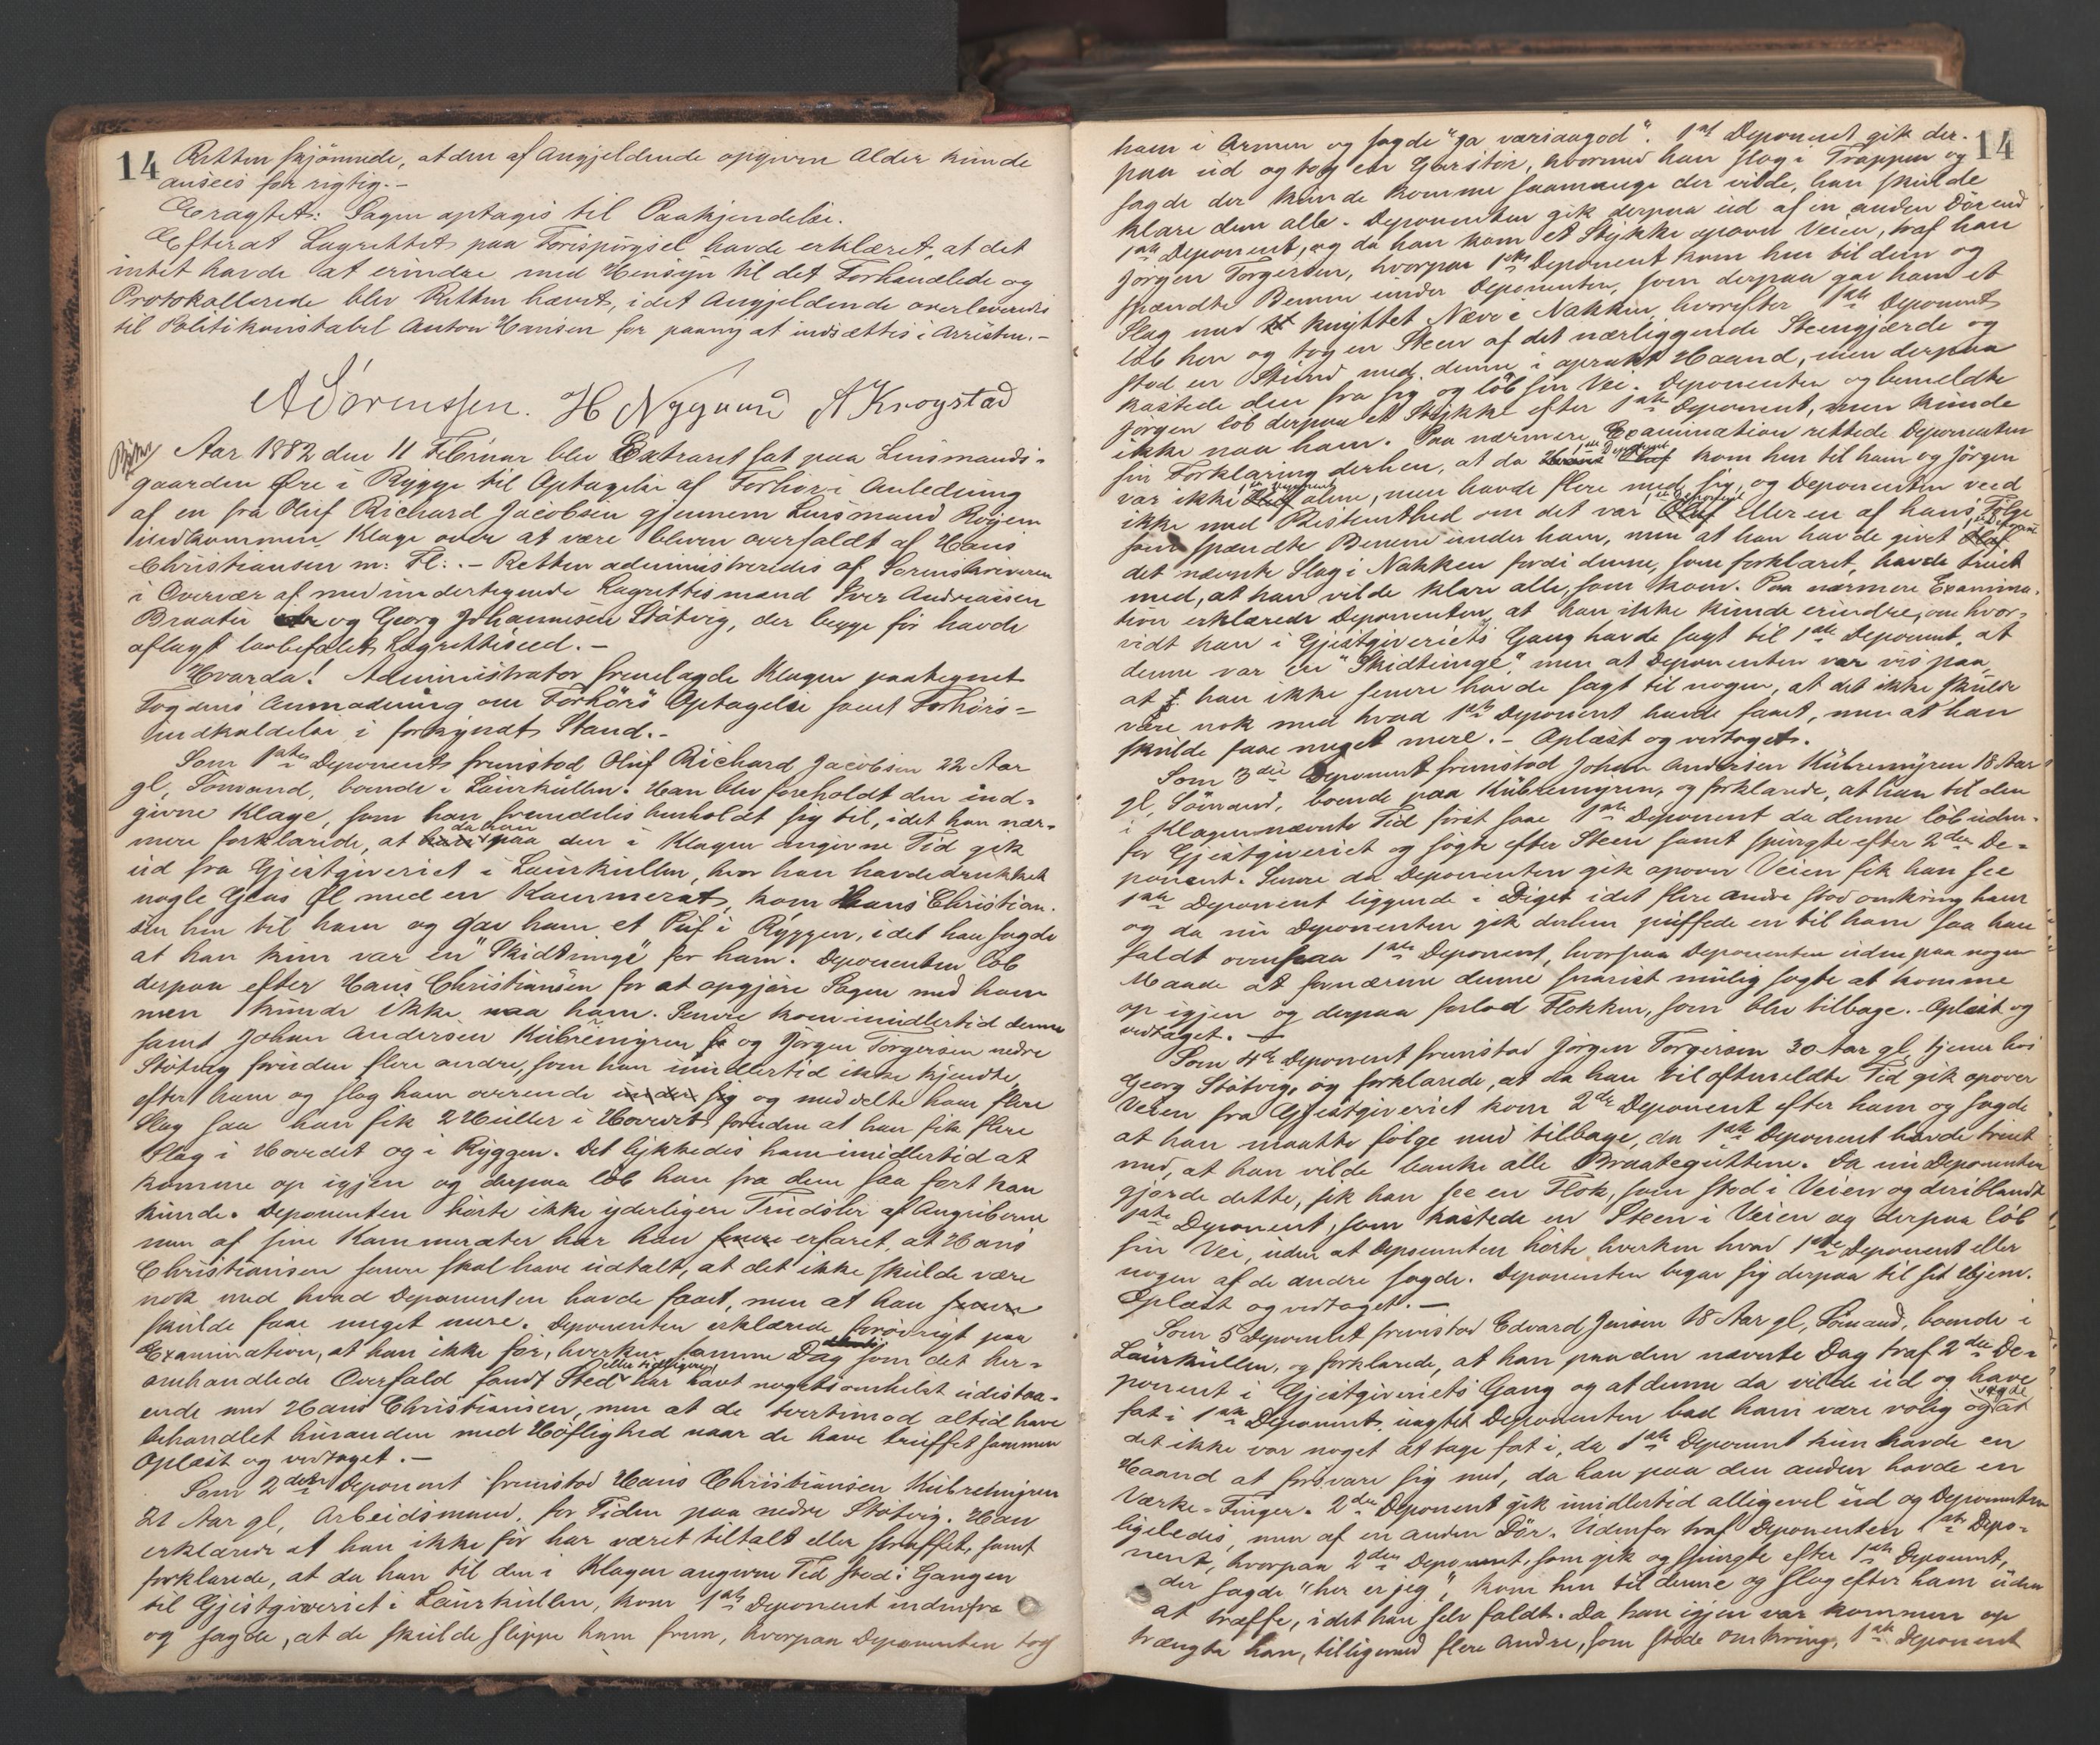 14
Retten skjønnede, at den af Angjeldende opgivne Alder kunde
ansees for rigtig.-
Eragtet: Sagen optages til Paakjendelse.
Efterat Lagrettet paa Forespørgsel havde erklæret, at det
intet havde at erindre med Hensyn til det Forhandlede og
Protokollerede blev Retten hævet, idet Angjeldende overleveredes
til Politikonstabel Anton Hansen for paany at indsættes i Arresten.-
A Sørenssen. H Nygaard A Krogstad
Aar 1882 den 11 Februar blev Extraret sat paa Lensmands-
gaarden Øre i Rygge til Optagelse af Forhør i Anledning
af en fra Oluf Richard Jacobsen gjennem Lensmand Rogen
indkommen Klage over at være bleven overfaldt af Hans
Christiansen m: Fl:.- Retten administreredes af Sorenskriveren
i Overvær af medundertegnede Lagrettesmænd Iver Andreasen
Braaten og Georg Johannesen Støtvig, der begge før havde
aflagt lovbefalet Lagretteseed.-
Hvarda! Administrator fremlagde Klagen paategnet
Fogdens Anmodning om Forhørs Optagelse samt Forhørs-
indkaldelse i forkyndt Stand.-
Som 1ste Deponent fremstod Oluf Richard Jacobsen 22 Aar
gl, Sømand, boende i Laurkullen. Han blev foreholdt den ind-
givne Klage, som han fremdeles henholdt sig til, idet han nær-
mere forklarede, at da han paa den i Klagen angivne Tid gik
ud fra Gjestgiveriet i Laurkullen, hvor han havde drukket
nogle Glas Øl med en Kammerat, kom Hans Christian-
sen hen til ham og gav ham et Puf i Ryggen, idet han sagde
at han kun var en "Skidtunge" for ham. Deponenten løb
derpaa efter Hans Christiansen for at opgjøre Sagen med ham
men kunde ikke naa ham. Senere kom imidlertid denne
samt Johan Andersen Kubremyren og Jørgen Torgersen nedre
Støtvig foruden flere andre, som han imidlertid ikke kjendte,
efter ham og slog ham overende under sig og meddelte ham flere
Slag saa han fik 2 Huller i Hovedet foruden at han fik flere
Slag i Hovedet og i Ryggen. Det lykkedes ham imidlertid at
komme op igjen og derpaa løb han fra dem saa fort han
kunde. Deponenten hørte ikke yderligere Trudsler af Angriberne
men af sine Kammerater har han senere erfaret, at Hans
Christiansen senere skal have udtalt, at det ikke skulde være
nok med hvad Deponenten havde faaet, men at han senere
skulde faae meget mere. Deponenten erklærede forøvrigt paa
Examination, at han ikke før, hverken samme Dag som det her-
omhandlede Overfald fandt Sted eller tidligere har havt nogetsomhelst udestaa-
ende med Hans Christiansen, men at de tvertimod altid have
behandlet hinanden med Høflighed naar de have truffet sammen
Oplæst og vedtaget.-
Som 2den Deponent fremstod Hans Christiansen Kubremyren
21 Aar gl, Arbeidsmand, for Tiden paa nedre Støtvig. Han
erklærede at han ikke før har været tiltalt eller straffet, samt
forklarede, at da han til den i Klagen angivne Tid stod i Gangen
til Gjestgiveriet i Laurkullen, kom 1ste Deponent indenfra
og sagde, at de skulde slippe ham frem, hvorpaa Deponenten tog
14
ham i Armen og sagde "ga værsaagod". 1ste Deponent gik der-
paa ud og tog en Gjerstør, hvormed han slog i Trappen og
sagde der kunde komme saamange der vilde, han skulde
klare dem alle. Deponenten gik derpaa ud af en anden Dør end
1ste Deponent, og da han kom et Stykke opover Veien, traf han
Jørgen Torgersen, hvorpaa 1ste Deponent kom hen til dem og
spændte Benene under Deponenten, som derpaa gav ham et
Slag med knyttet Næve i Nakken, hvorefter 1ste Deponent
løb hen og tog en Steen af det nærliggende Steengjærde og
stod en Stund med denne i oprakt Haand, men derpaa
kastede den fra sig og løb sin Vei. Deponenten og bemeldte
Jørgen løb derpaa et Stykke efter 1ste Deponent, men kunde
ikke naa ham. Paa nærmere Examination rettede Deponenten
sin Forklaring derhen, at da 1ste Deponent kom hen til ham og Jørgen
var ikke 1ste Deponent alene, men havde flere med sig, og Deponenten veed
ikke med Bestemthed om det var 1ste Deponent eller en af hans Følge
som spændte Benene under ham, men at han havde givet 1ste Deponent
det nævnte Slag i Nakken fordi denne, som forklaret, havde truet
med, at han vilde klare alle, som kom. Paa nærmere Examina-
tion erklærede Deponenten, at han ikke kunde erindre, om hvor-
vidt han i Gjestgiveriets Gang havde sagt til 1ste Deponent, at
denne var en "Skidtunge", men at Deponenten var vis paa,
at han ikke senere havde sagt til nogen, at det ikke skulde
være nok med hvad 1ste Deponent havde faaet, men at han
skulde faae meget mere.- Oplæst og vedtaget.
Som 3die Deponent fremstod Johan Andersen Kubremyren 18 Aar
gl, Sømand, boende paa Kubremyren, og forklarede, at han til den
i Klagen nævnte Tid først saae 1ste Deponent da denne løb uden-
for Gjestgiveriet og søgte efter Steen samt spurgte efter 2den De-
ponent. Senere da Deponenten gik opover Veien fik han see
1ste Deponent liggende i Diget idet flere andre stod omkring ham
og da nu Deponenten gik derhen puffede en til ham saa han
faldt ovenpaa 1ste Deponent, hvorpaa Deponenten uden paa nogen
Maade at fornærme denne snarest mulig søgte at komme
op igjen og derpaa forlod Flokken, som blev tilbage.- Oplæst og
vedtaget.-
Som 4de Deponent fremstod Jørgen Torgersen 30 Aar gl, tjener hos
Georg Støtvig, og forklarede, at da han til oftmeldte Tid gik opover
Veien fra Gjestgiveriet kom 2den Deponent efter ham og sagde
at han maatte følge med tilbage, da 1ste Deponent havde truet
med, at han vilde banke alle Braateguttene. Da nu Deponenten
gjorde dette, fik han see en Flok, som stod i Veien og deriblandt
1ste Deponent, som kastede en Steen i Veien og derpaa løb
sin Vei, uden at Deponenten hørte hverken hvad 1ste Deponent eller
nogen af de andre sagde. Deponenten begav sig derpaa til sit Hjem.
Oplæst og vedtaget.-
Som 5 Deponent fremstod Edvard Jensen 18 Aar gl, Sømand, boende i
Laurkullen, og forklarede, at han paa den nævnte Dag traf 2den De-
ponent i Gjestgiveriets Gang og at denne da vilde ud og have
fat i 1ste Deponent, uagtet Deponenten bad ham være rolig og sagde at
det ikke var noget at tage fat i, da 1ste Deponent kun havde en
Haand at forsvare sig med, da han paa den anden havde en
Værke-Finger. 2den Deponent gik imidlertid alligevel ud og Deponenten
ligeledes, men af en anden Dør. Udenfor traf Deponenten 1ste Depo-
nent, hvorpaa 2den Deponent, som gik og spurgte efter 1ste Deponent,
der sagde "her er jeg", kom hen til denne og slog efter ham uden
at træffe, idet han selv faldt. Da han igjen var kommen op
trængte han, tilligemed flere andre, som stode omkring, 1ste Deponent